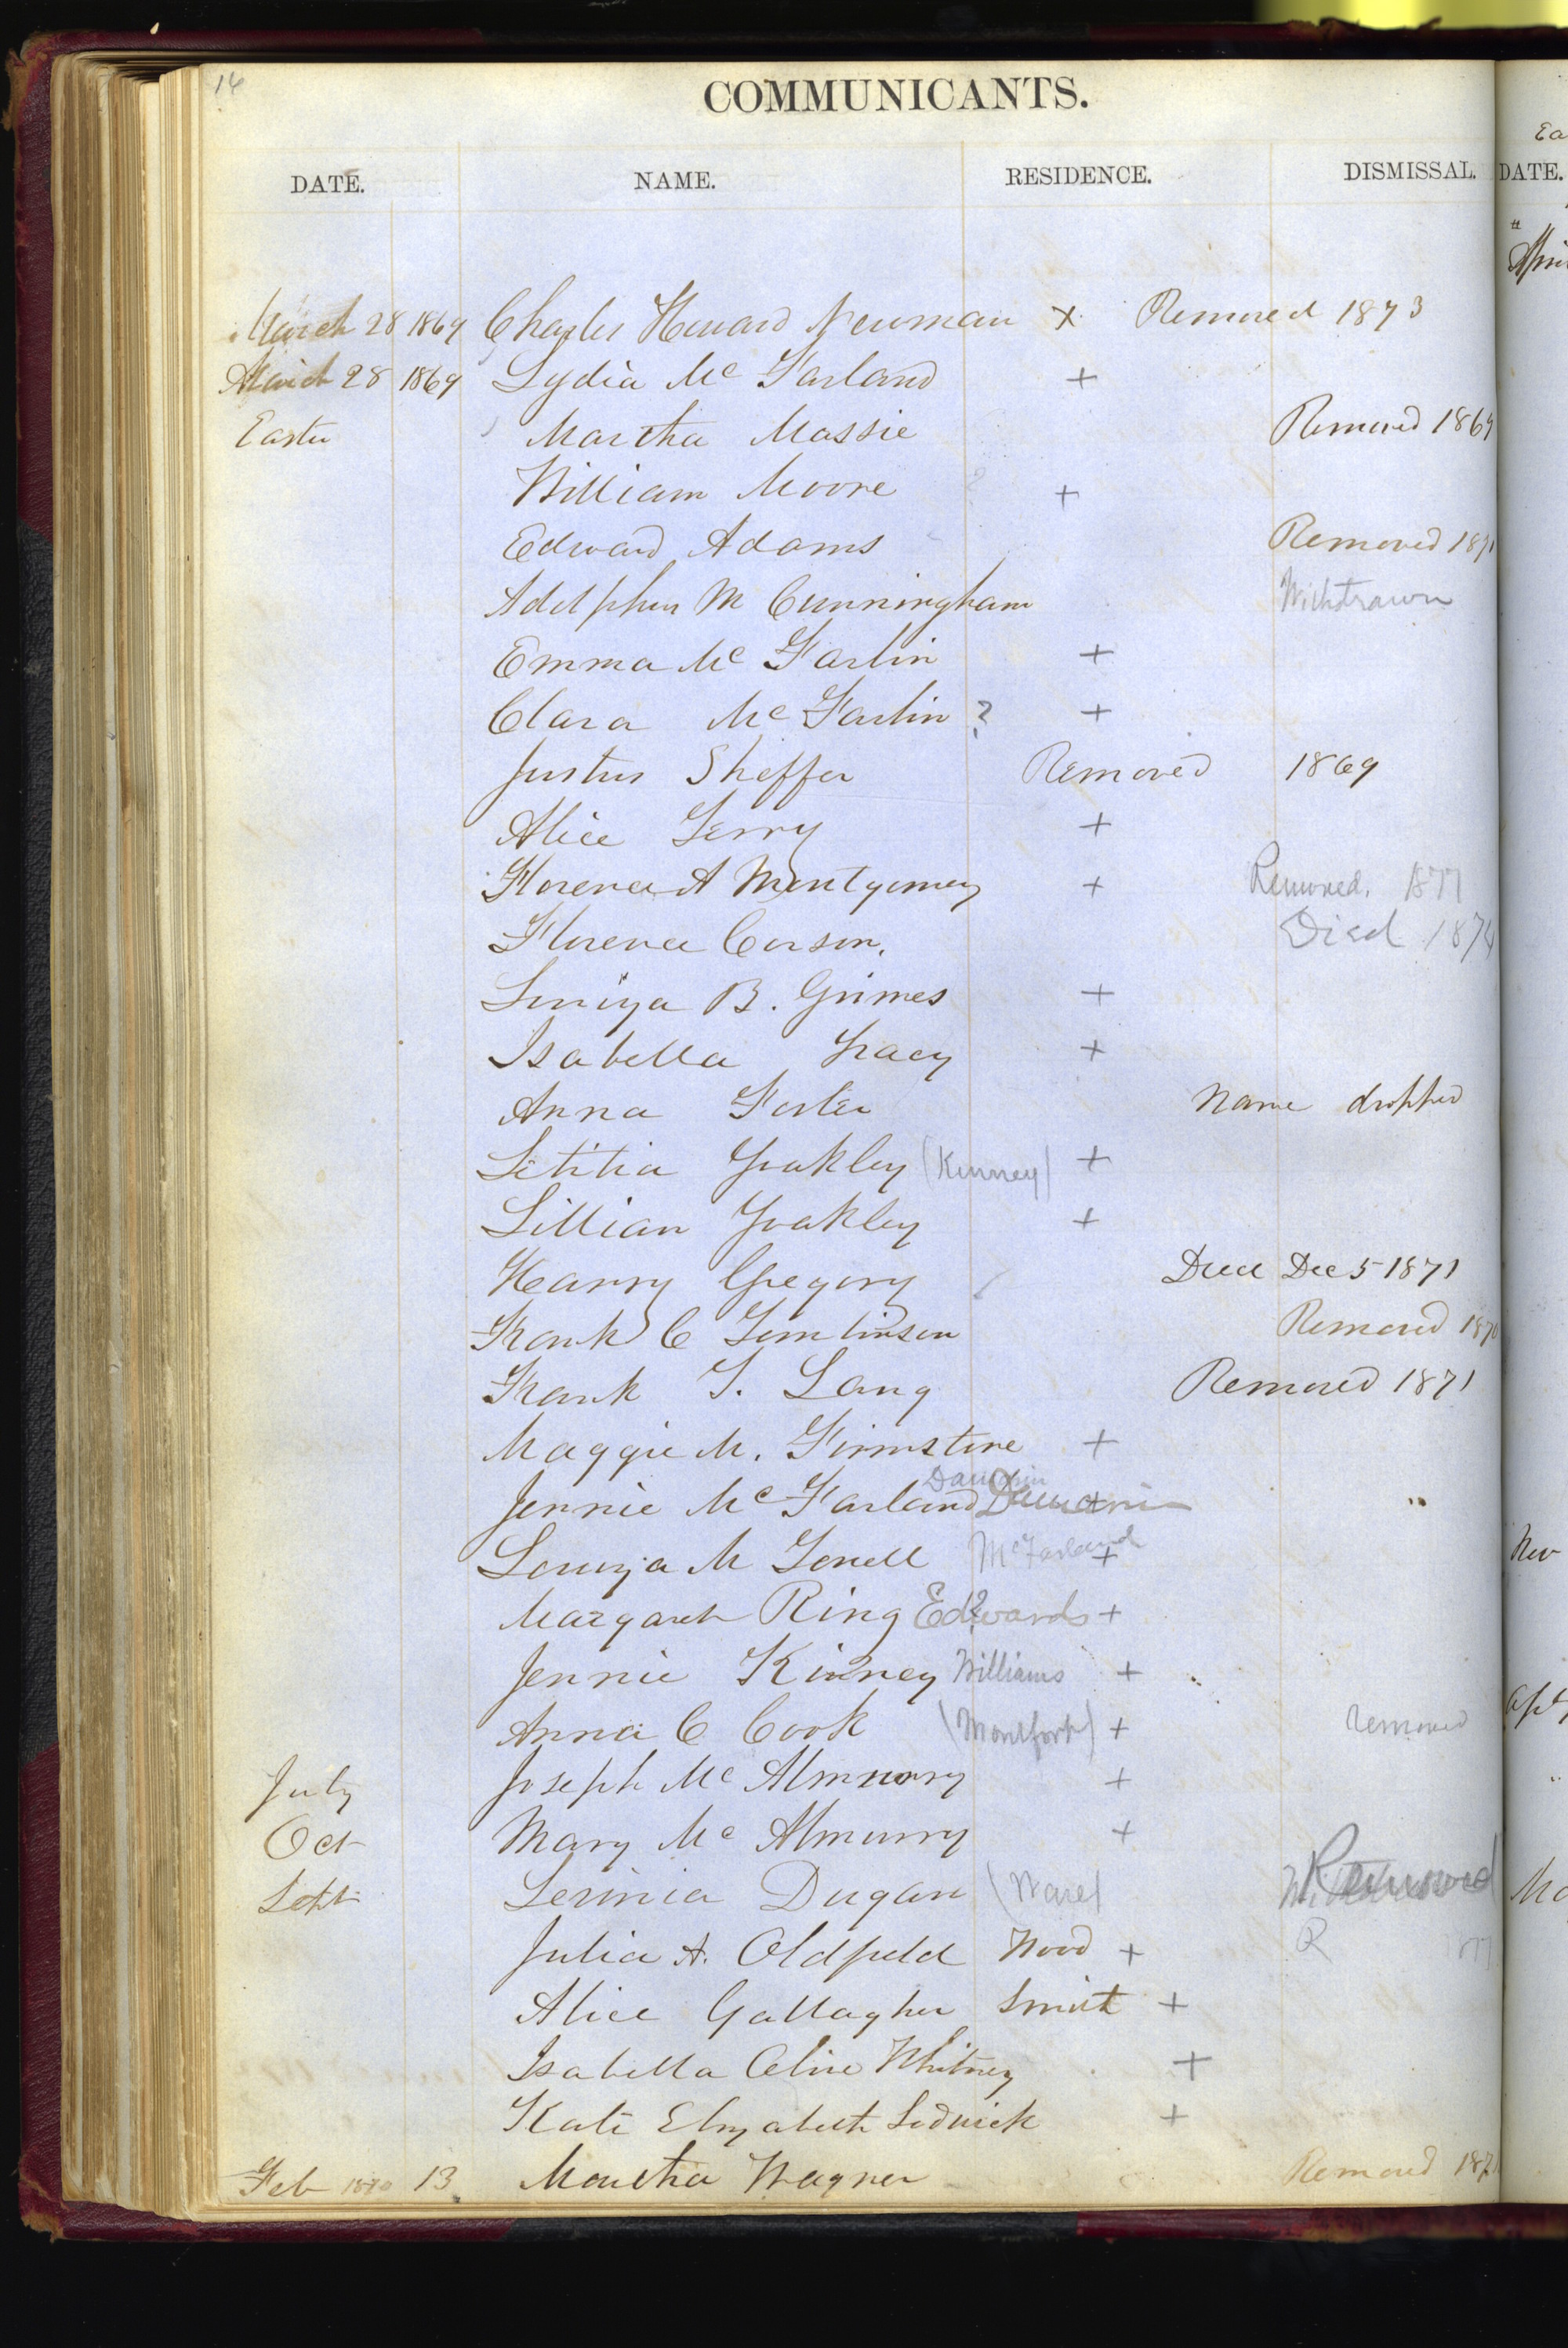 16
COMMUNICANTS.
DATE. NAME. RESIDENCE. DISMISSAL.
March 28 1869 Charles Howard Newman x Removed 1873
March 28 1869 Lydia Mc Farland +
Easter Martha Massie Removed 1869
William Moore ? +
Edward Adams Removed 1871
Adolphus M Cunningham Withdrawn
Emma Mc Farlin +
Clara Mc Farlin ? +
Justus Sheffer Removed 1869
Alice Terry +
Florence A Montgomery + Removed. 1877
Florence Corson. Died 1874
Louiza B. Grimes +
Isabella Tracy +
Anna Foster Name dropped
Letitia Yoakley (Kinney) +
Lillian Yoakley +
Harry Gregory Died Dec 5 1871
Frank C Tomlinson Removed 1870
Frank T. Lang Removed 1871
Maggie M. Firmstone +
Jennie Mc Farland +
Louiza M Terrell McFarland +
Margaret Ring Edwards +
Jennie Kinney Williams +
Anna C Cook (Montfort) + removed
July Joseph Mc Almurry +
Oct Mary Mc Almurry +
Sept Dugan (Ware) Removed
Julia A. Oldfield Wood + R
Alice Gallagher Smith +
Isabella Olive Whitney +
Kate Elizabeth Sedwick +
Feb 1870 13 Martha Wagner Removed 187
DATE.
Nov